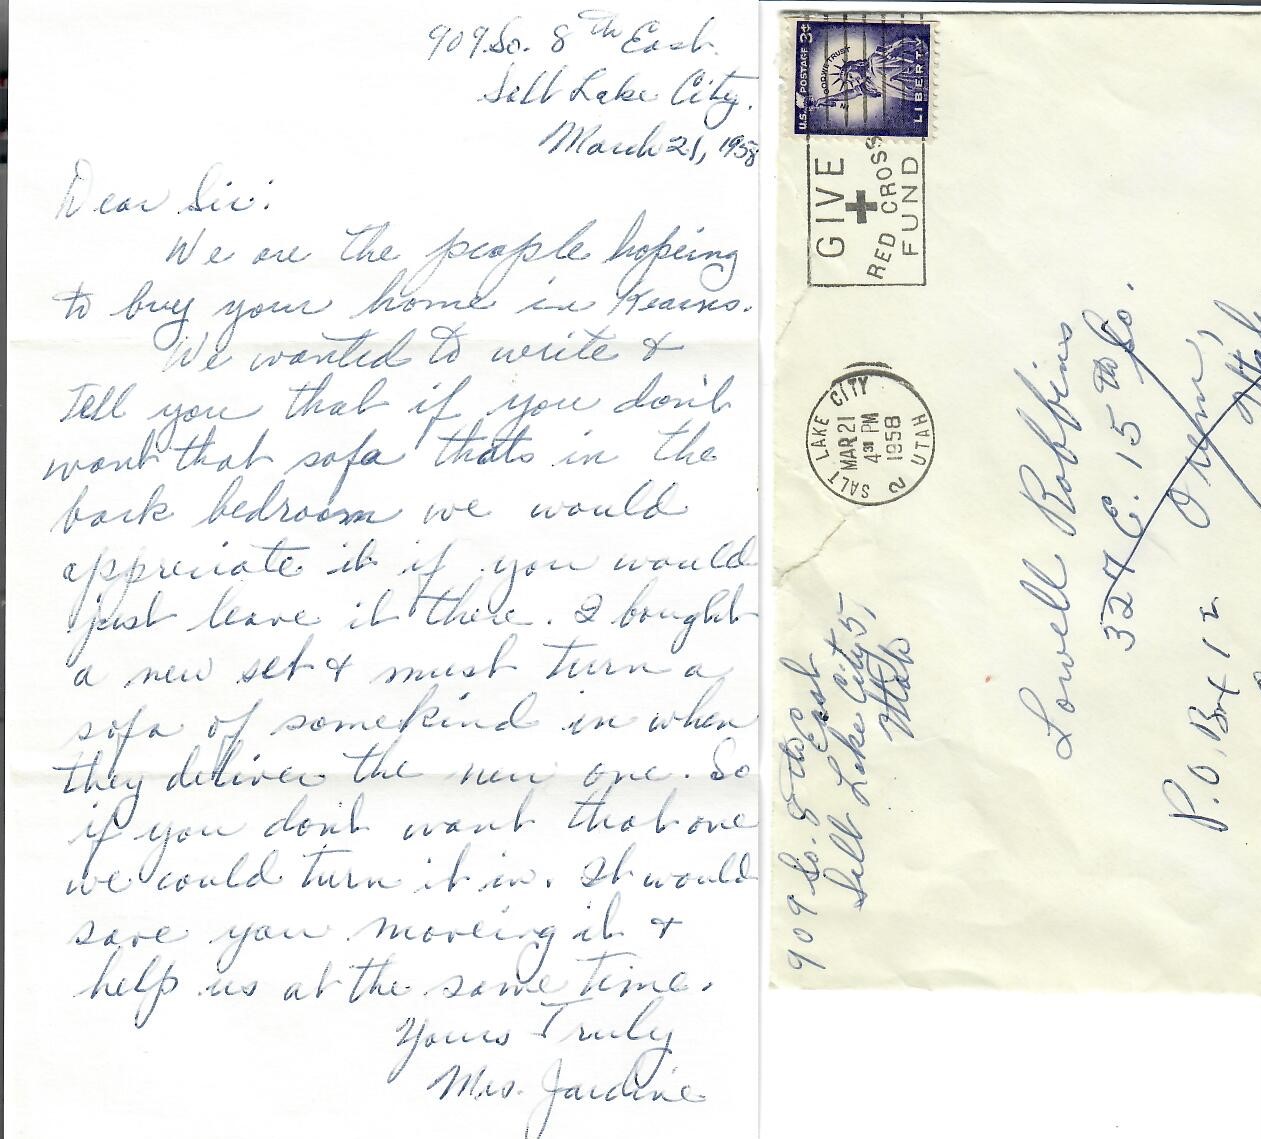 909 So. 8th East
Salt Lake City.
March 21, 1958
Dear Sir:
We are the people hopeing
to buy your home in Kearns.
We wanted to write &
Tell you that if you don't
want that sofa thats in the
back bedroom we would
appreciate it if you would
just leave it there. I bought
a new set & must turn a
sofa of somekind in when
they deliver the new one. So
if you dont want that one
we could turn it in. It would
save you moveing it &
help us at the same time.
Yours Truly
Mrs. Jardine
U.S. POSTAGE 3¢
IN GOD WE TRUST
LIBERTY
GIVE
RED CROSS
FUND
SALT LAKE CITY
MAR 21
4 30 PM
1958
2 UTAH
909 So. 8th East
Salt Lake City 5,
Utah
Lowell Robbins
327 E. 15th So.
Orem,
Utah
P.O. Box 12